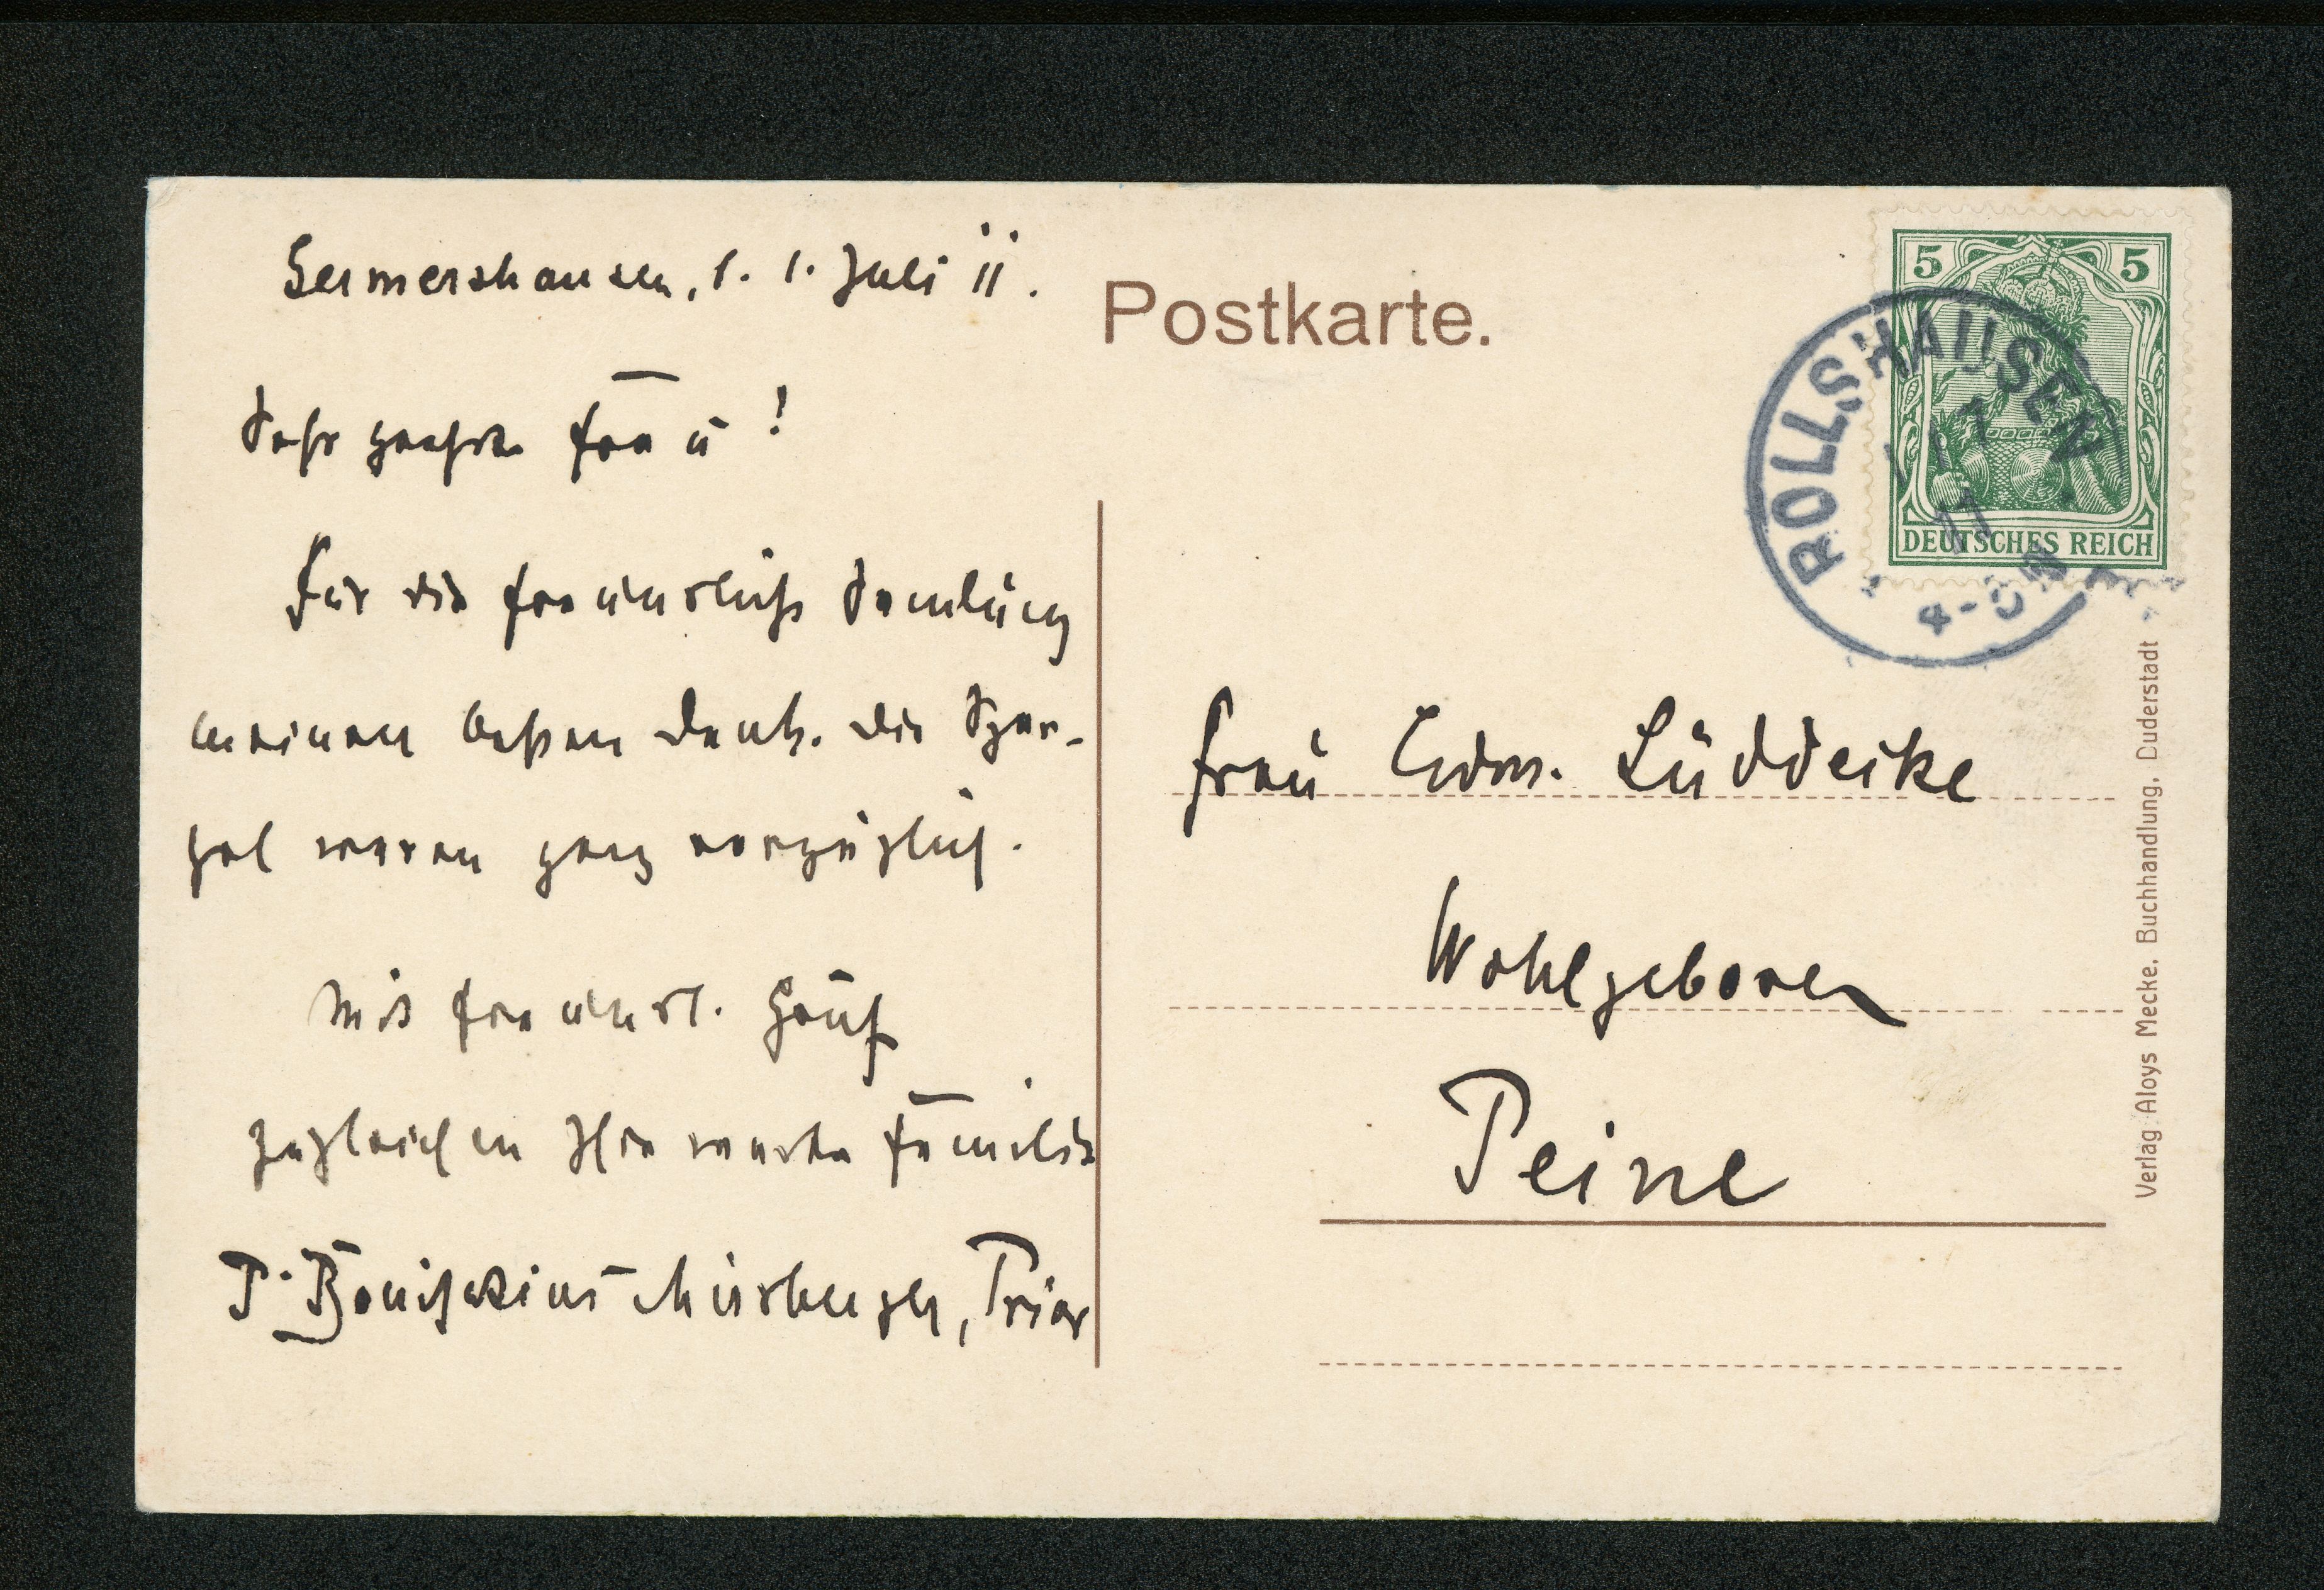 Germershausen, 1. 1. Juli 11.
Sehr geehrte Frau!
Für die freundliche Sendung
meinen besten Dank. Die Spar-
gel waren ganz vorzüglich.
Mit freundl. Gruß
zugleich an Ihre werte Familie
P. Bonifazius Prior
Postkarte.
5 5
DEUTSCHES REICH
ROLLSHAUSEN
Frau Edm. Lüddecke
Wohlgeboren
Peine
Verlag Aloys Mecke, Buchhandlung, Duderstadt